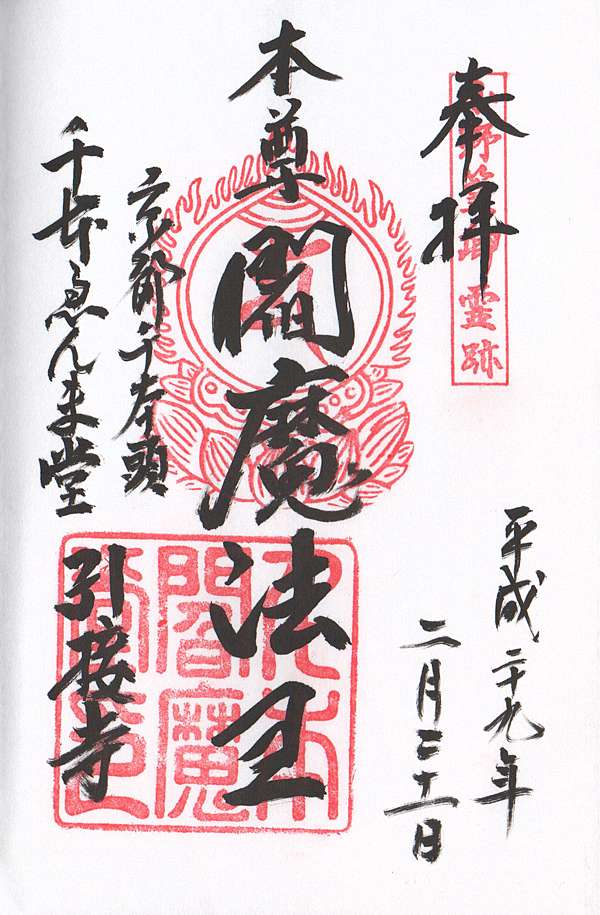 奉拝
野篁卿 霊跡
平成二十九年
二月二十一日
本尊
閻魔法王
京都千本頭
千本ゑんま堂
引接寺
閻魔